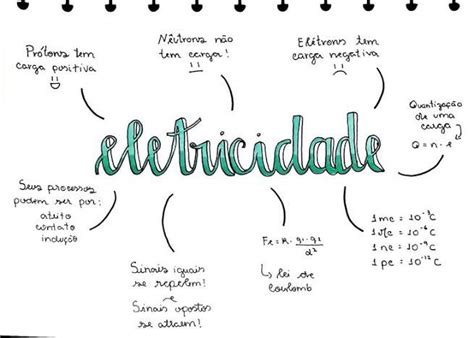 Prótons tem
carga positiva
Nêutrons não
tem carga!
Elétrons tem
carga negativa
Quantização
de uma
carga
Q = n · e
eletricidade
Seus processos
podem ser por:
atrito
contato
indução
Sinais iguais
se repelem!
e
Sinais opostos
se atraem!
Fe = K · q1 · q2
d²
↳ lei de
coulomb
1 mc = 10⁻³ C
1 μc = 10⁻⁶ C
1 nc = 10⁻⁹ C
1 pc = 10⁻¹² C